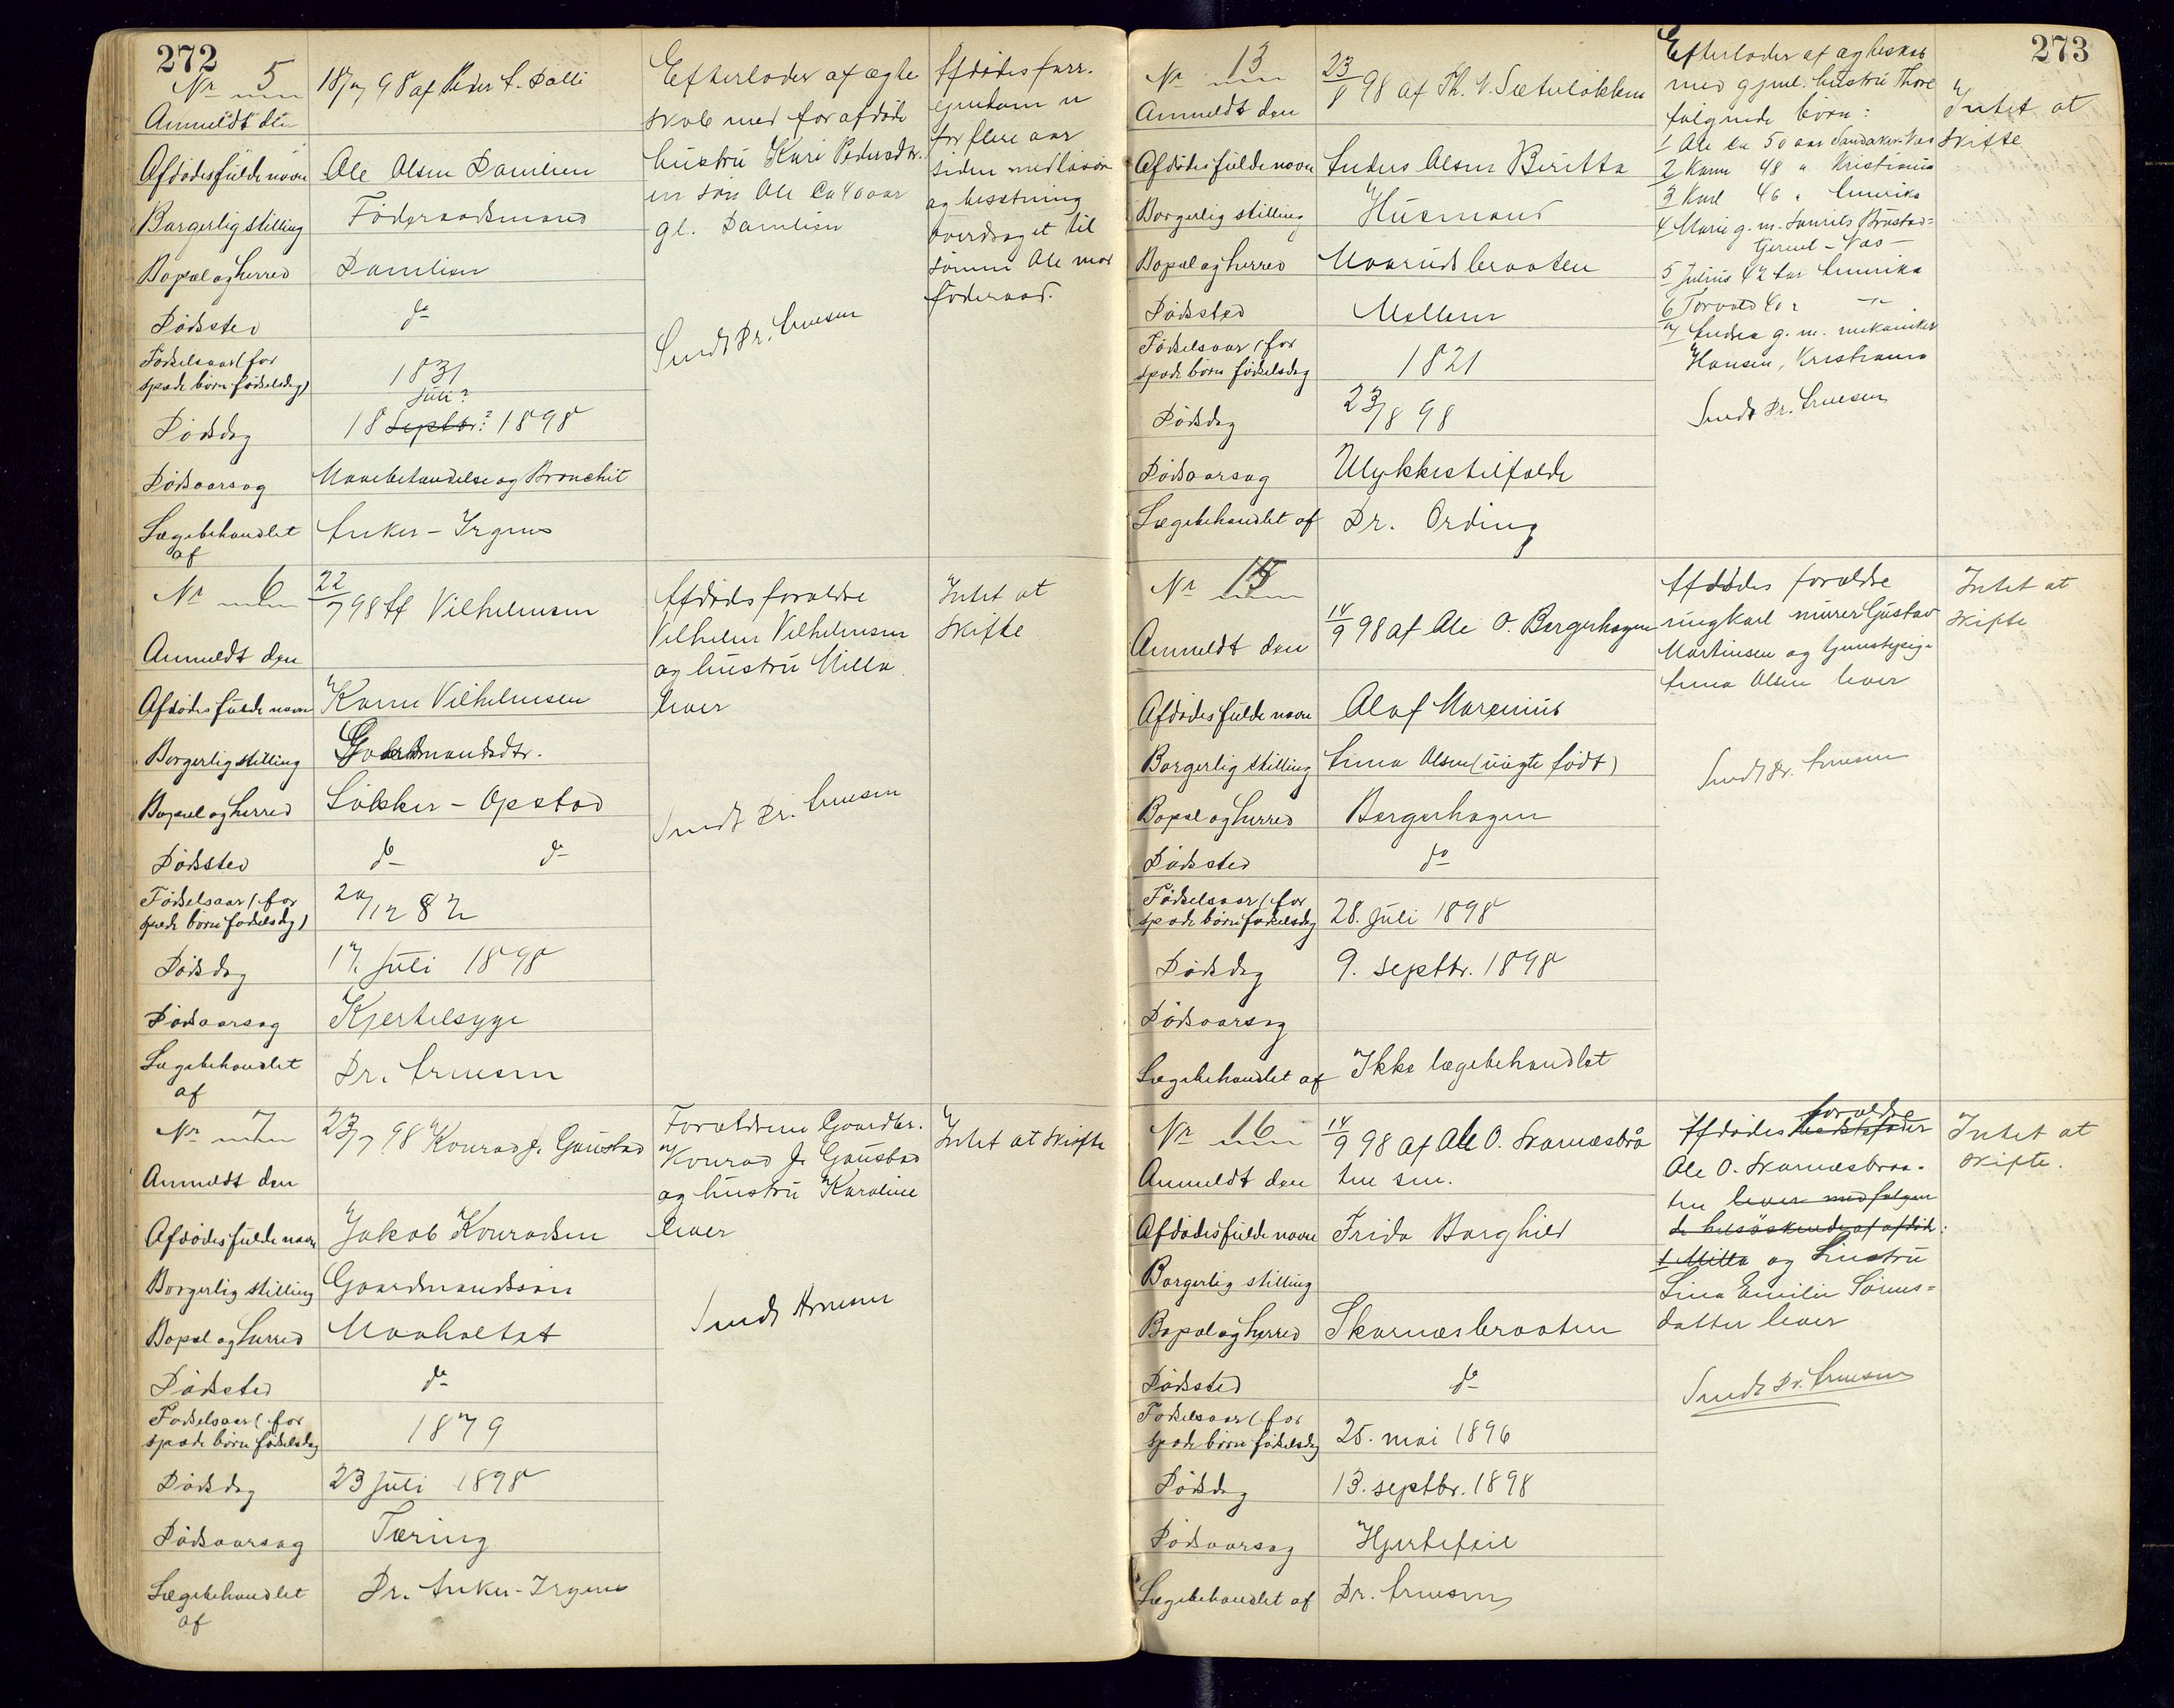 272
Nr 5
18/7 98 af Peder L. Dalli
Anmeldt den
Afdødes fulde navn Ole Olsen Damlien
Borgerlig stilling Föderaadsmand
Bopæl og herred Damlien
Dødssted do
Fødselsaar (for
spæde børn fødselsdag) 1831
Juli?
Dødsdag 18 Septbr.? 1898
Dødsaarsag Mavebetændelse og Bronchit
Lægebehandlet
af
Anker-Irgens
Efterlader af ægte
skab med forafdöde
hustru Kari Pedersdtr.
en sön Ole ca 40 aar
gl. Damlien
Sendt Dr. Arnesen
Afdödes farr.
eiendom er
for flere aar
siden med lösöre
og besetning
overdraget til
sönnen Ole mod
föderaad.
Nr 6
22/7 98 af Vilhelmsen
Anmeldt den
Afdødes fulde navn Karen Vilhelmsen
Borgerlig stilling Gaardmandsdtr.
Bopæl og herred Lökker - Opstad
Dødssted do do
Fødselsaar (for
spæde børn fødselsdag) 20/12 82
Dødsdag 17. Juli 1898
Dødsaarsag Kjertelsyge
Lægebehandlet
af
Dr. Arnesen
Afdödes forældre
Vilhelm Vilhelmsen
og hustru Milla
lever
Sendt Dr. Arnesen
Intet at
skifte
Nr 7
23/7 98 Konrad J. Gaustad
Anmeldt den
Afdødes fulde navn Jakob Konradsen
Borgerlig stilling Gaardmandssön
Bopæl og herred Vaaholtet
Dødssted do
Fødselsaar (for
spæde børn fødselsdag 1879
Dødsdag 23 Juli 1898
Dødsaarsag Tæring
Lægebehandlet
af
Dr. Anker-Irgens
Forældrene Gaardbr.
Konrad J. Gaustad
og hustru Karoline
lever
Sendt Arnesen
Intet at skifte
273
Nr 13
23/8 98 af Th. V. Sæterlökken
Anmeldt den
Afdødes fulde navn Anders Olsen Beritta
Borgerlig stilling Husmand
Bopæl og herred Vaarudsbraaten
Dødssted Mellem
Fødselsaar (for
spæde børn fødselsdag 1821
Dødsdag 23/8 98
Dødsaarsag Ulykkestilfælde
Lægebehandlet af Dr. Ording
Efterlader af ægteskab
med gjenl. hustru Thore
følgende børn:
1 Ole ca 50 aar Sandaker Nes
2 Karen 48 " Kristiania
3 Karl 46 " Amerika
4 Marie g. m. Laurits Brustad-
Gjerud - Nes -
5 Julius 42 aar Amerika
6 Torvald 40 " - " -
7 Andrea g. m. mekaniker
Hansen, Kristiania
Sendt Dr. Arnesen
Intet at
skifte
Nr 15
14/9 98 af Ole O. Bergerhagen
Anmeldt den
Afdødes fulde navn Olaf Marenius
Borgerlig stilling Anna Olsen (uægte født)
Bopæl og herred Bergerhagen
Dødssted do
Fødselsaar (for
spæde børn fødselsdag 28. Juli 1898
Dødsdag 9. septbr. 1898
Dødsaarsag
Lægebehandlet af Ikke lægebehandlet
Afdödes forældre
ungkarl murer Gustav
Martinsen og tjenestepige
Anna Olsen lever
Sendt Dr. Arnesen
Intet at
skifte
Nr 16
14/9 98 af Ole O. Skarnæsbraa
ten sen.
Anmeldt den
Afdødes fulde navn Frida Borghild
Borgerlig stilling
Bopæl og herred Skarnæsbraaten
Dødssted do
Fødselsaar (for
spæde børn fødselsdag 25. mai 1896
Dødsdag 13. septbr. 1898
Dødsaarsag Hjertefeil
Lægebehandlet af Dr. Arnesen
forældre
Afdødes
Ole O. Skarnæsbraa-
ten lever med følgen
de helsöskende af afdöde:
1 Milla og hustru
Lina Emilie Sörens-
datter lever
Sendt Dr. Arnesen
Intet at
skifte.